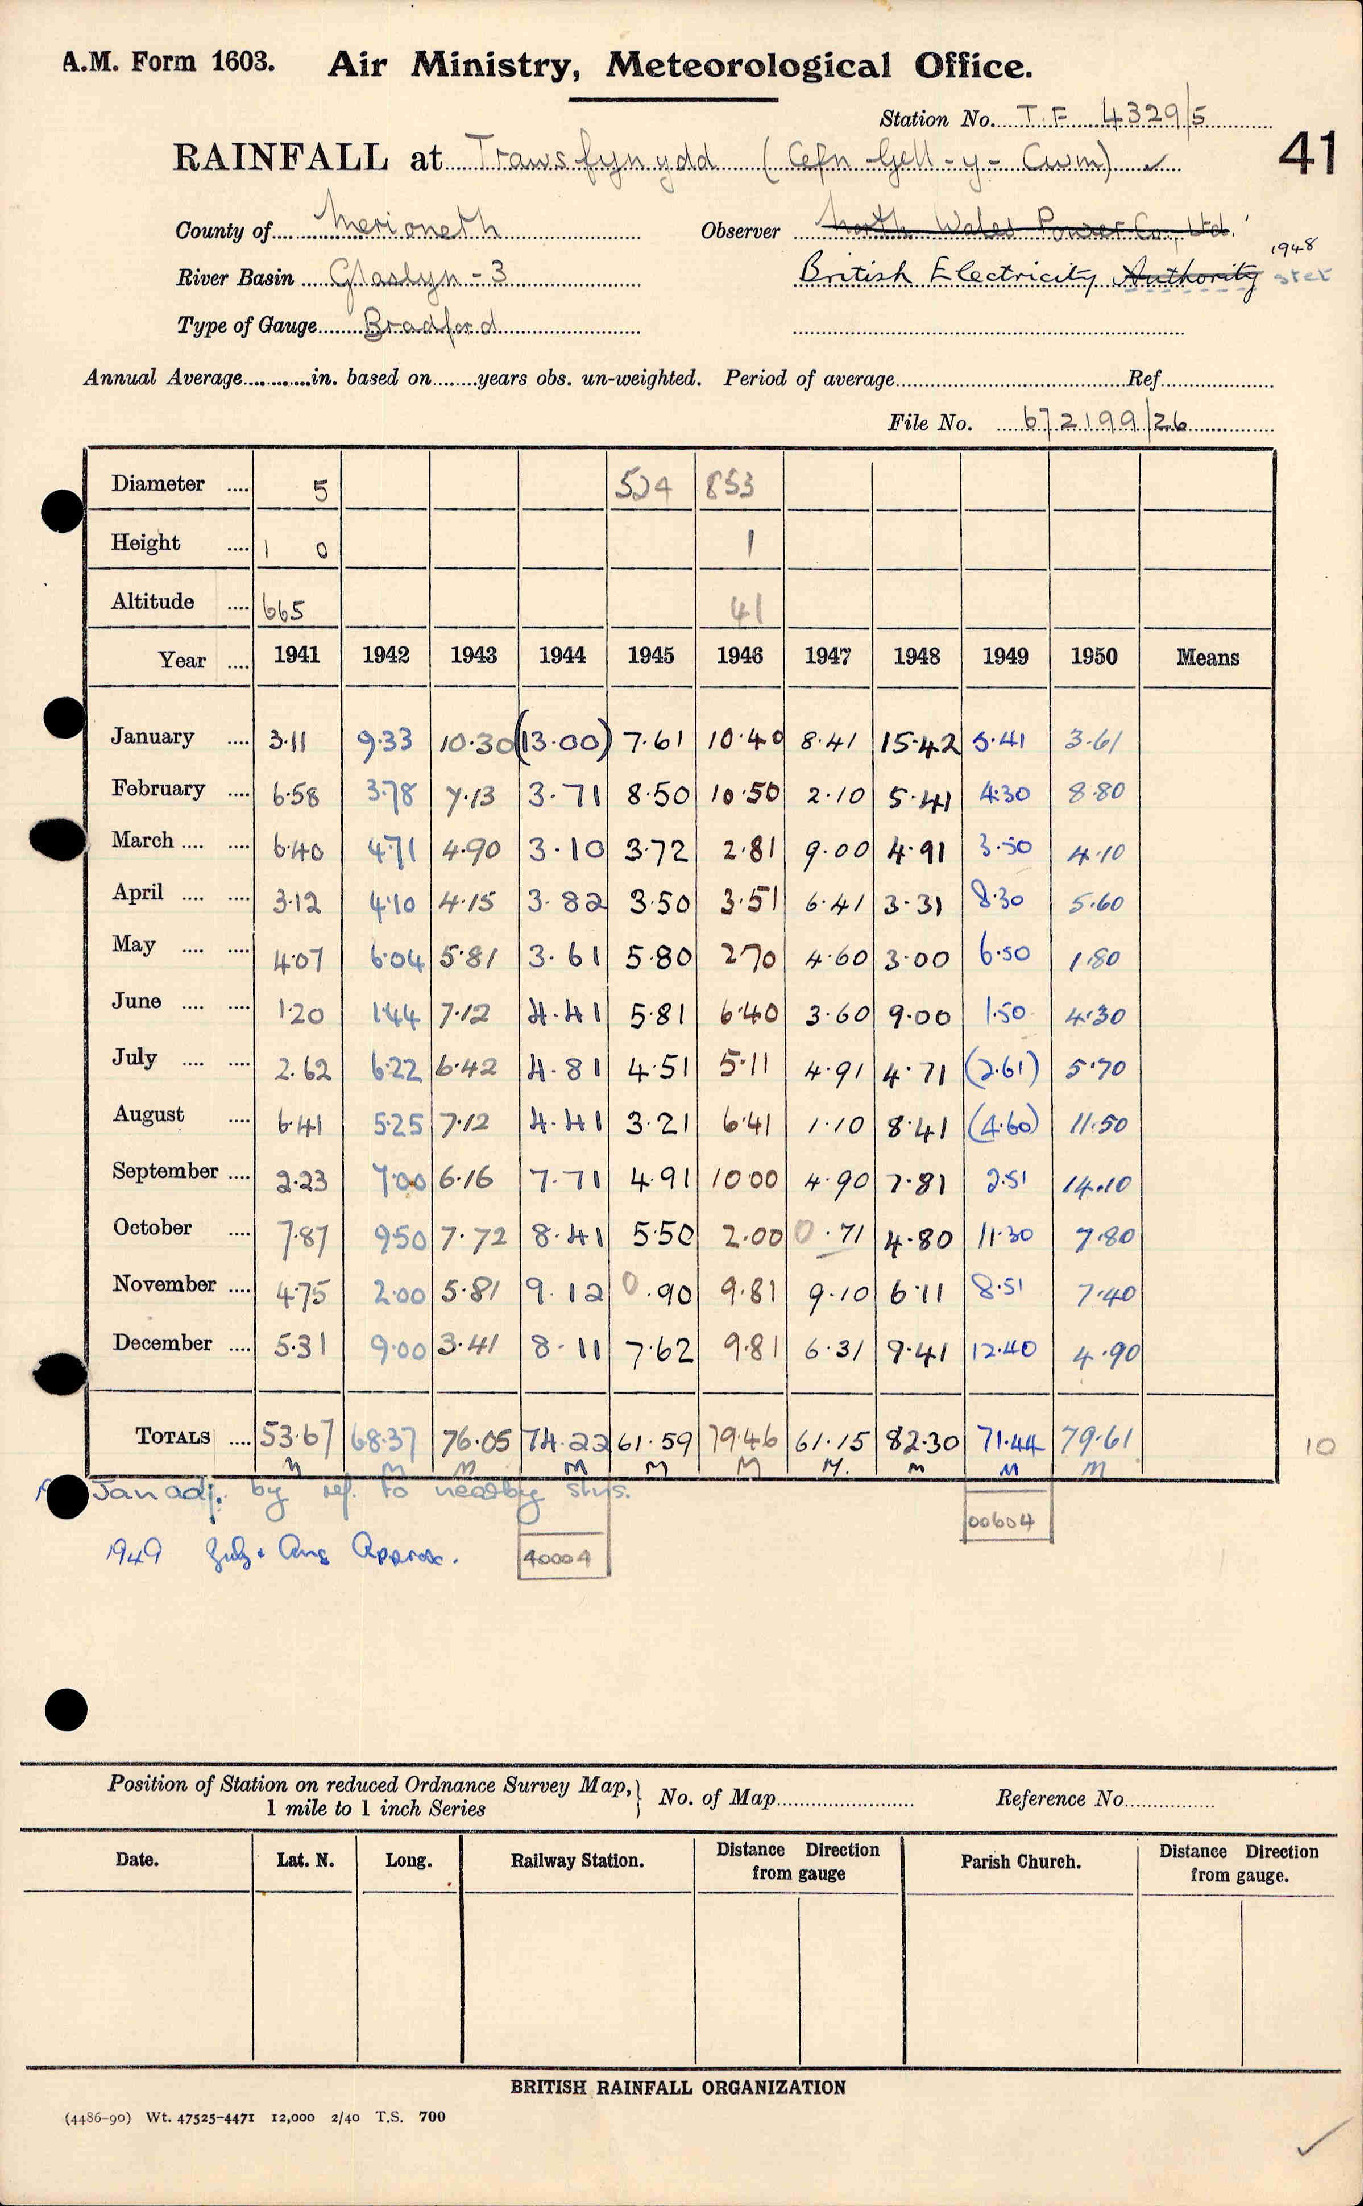 A.M. Form 1603. Air Ministry, Meteorological Office.
Station No. T.F 4329/5
RAINFALL at Trawsfynydd (Cefn-Gell-y-Cwm) ✓ 41
County of Merioneth Observer North Wales Power Co., Ltd.
1948
River Basin Glaslyn-3 British Electricity Authority stet
Type of Gauge Bradford
Annual Average............in. based on........years obs. un-weighted. Period of average........Ref........
File No. 672199/26
Diameter .... 5 524 853
Height .... 1 0 1
Altitude .... 665 41
Year .... 1941 1942 1943 1944 1945 1946 1947 1948 1949 1950 Means
January .... 3.11 9.33 10.30 (13.00) 7.61 10.40 8.41 15.42 5.41 3.61
February .... 6.58 3.78 7.13 3.71 8.50 10.50 2.10 5.41 4.30 8.80
March .... .... 6.40 4.71 4.90 3.10 3.72 2.81 9.00 4.91 3.50 4.10
April .... .... 3.12 4.10 4.15 3.82 3.50 3.51 6.41 3.31 8.30 5.60
May .... .... 4.07 6.04 5.81 3.61 5.80 2.70 4.60 3.00 6.50 1.80
June .... .... 1.20 1.44 7.12 4.41 5.81 6.40 3.60 9.00 1.50 4.30
July .... .... 2.62 6.22 6.42 4.81 4.51 5.11 4.91 4.71 (2.61) 5.70
August .... 6.41 5.25 7.12 4.41 3.21 6.41 1.10 8.41 (4.60) 11.50
September .... 2.23 7.00 6.16 7.71 4.91 10.00 4.90 7.81 2.51 14.10
October .... 7.87 9.50 7.72 8.41 5.50 2.00 0.71 4.80 11.30 7.80
November .... 4.75 2.00 5.81 9.12 0.90 9.81 9.10 6.11 8.51 7.40
December .... 5.31 9.00 3.41 8.11 7.62 9.81 6.31 9.41 12.40 4.90
TOTALS .... 53.67 68.37 76.05 74.22 61.59 79.46 61.15 82.30 71.44 79.61 10
M M M M M M M. M M M
Jan adj. by ref. to nearby stns.
00604
1949 July & Aug Approx. 40004
Position of Station on reduced Ordnance Survey Map, 1 mile to 1 inch Series } No. of Map........ Reference No........
Date. Lat. N. Long. Railway Station. Distance Direction from gauge Parish Church. Distance Direction from gauge.
BRITISH RAINFALL ORGANIZATION
(4486-90) Wt. 47525-4471 12,000 2/40 T.S. 700